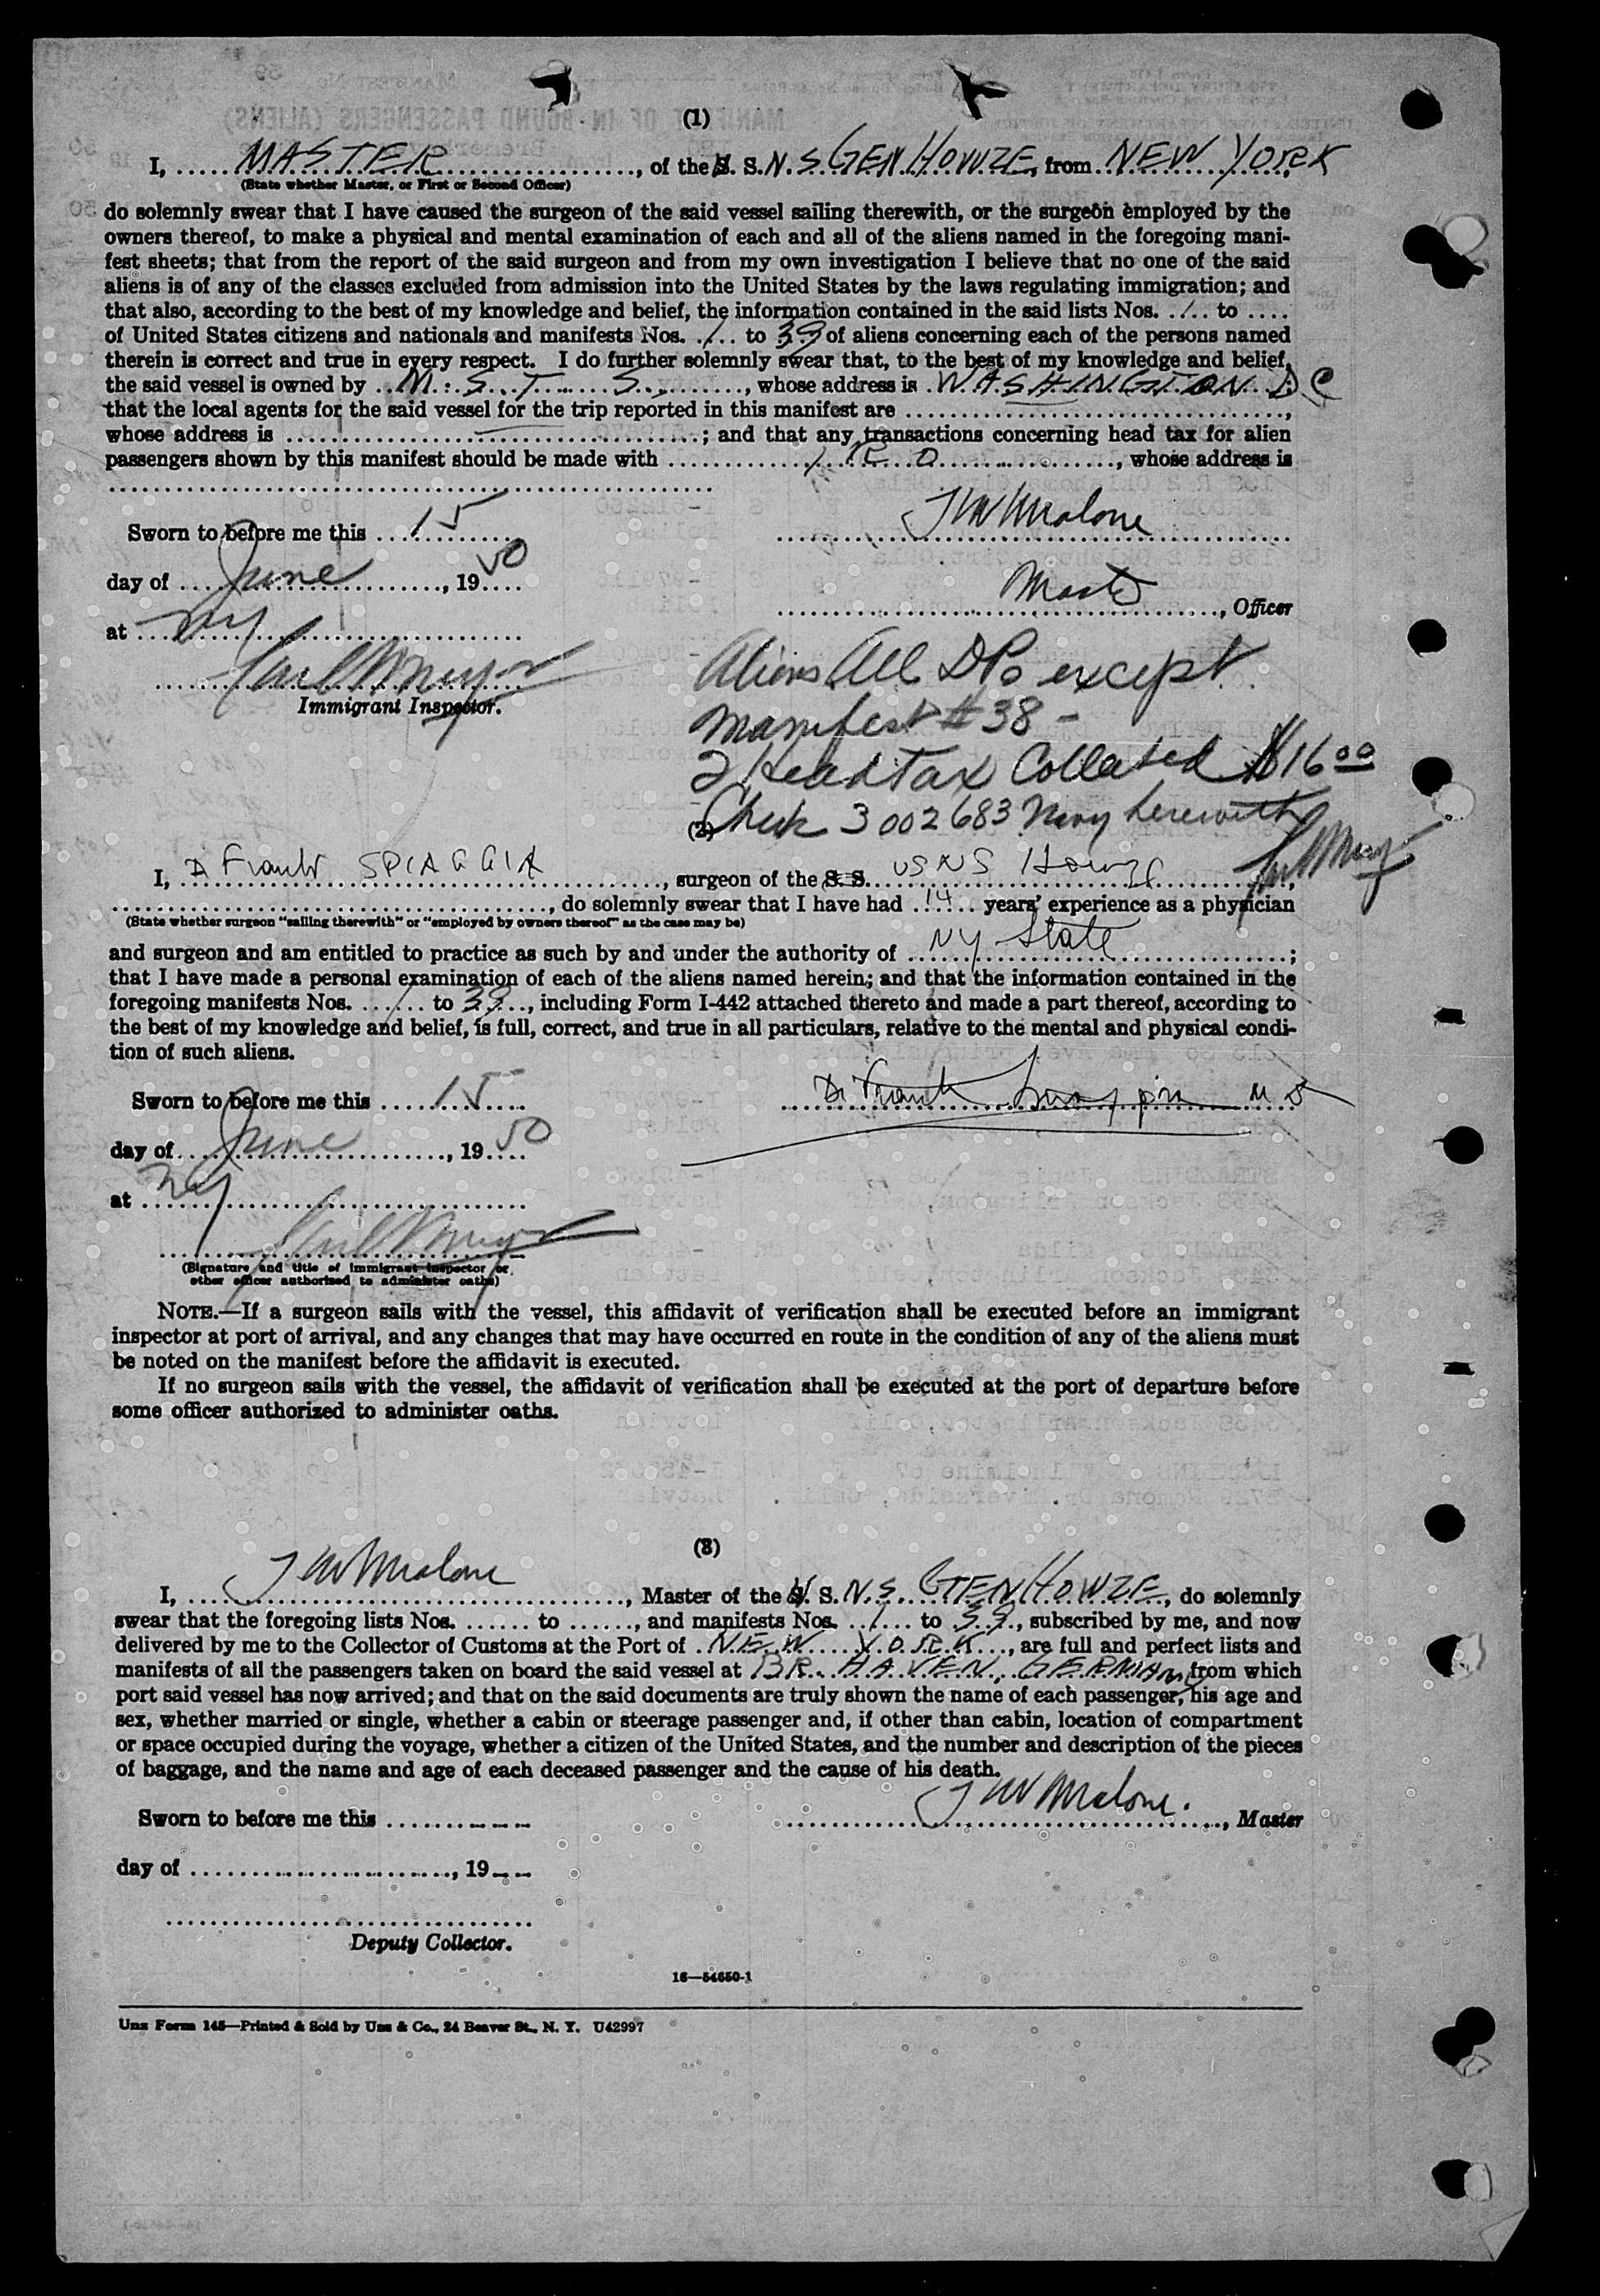 (1)
I, MASTER, of the U. S. N. S GEN HOWZE, from NEW YORK,
(State whether Master, or First or Second Officer)
do solemnly swear that I have caused the surgeon of the said vessel sailing therewith, or the surgeon employed by the
owners thereof, to make a physical and mental examination of each and all of the aliens named in the foregoing mani-
fest sheets; that from the report of the said surgeon and from my own investigation I believe that no one of the said
aliens is of any of the classes excluded from admission into the United States by the laws regulating immigration; and
that also, according to the best of my knowledge and belief, the information contained in the said lists Nos. 1 to ....
of United States citizens and nationals and manifests Nos. 1 to 39 of aliens concerning each of the persons named
therein is correct and true in every respect. I do further solemnly swear that, to the best of my knowledge and belief,
the said vessel is owned by M. S. T. S., whose address is WASHINGTON DC
that the local agents for the said vessel for the trip reported in this manifest are ....................,
whose address is ....................; and that any transactions concerning head tax for alien
passengers shown by this manifest should be made with I R O, whose address is
....................
J W Malone
Sworn to before me this 15
day of June, 1950
Master, Officer
at NY
Immigrant Inspector.
Aliens All DPs except
manifest # 38 -
2 Head Tax Collected $16 00
Check 3 002683 Navy herewith
(2)
I, Dr Frank SPIAGGIA, surgeon of the S. S. USNS Howze,
...................., do solemnly swear that I have had 14 years' experience as a physician
(State whether surgeon "sailing therewith" or "employed by owners thereof" as the case may be)
and surgeon and am entitled to practice as such by and under the authority of NY State;
that I have made a personal examination of each of the aliens named herein; and that the information contained in the
foregoing manifests Nos. 1 to 39, including Form I-442 attached thereto and made a part thereof, according to
the best of my knowledge and belief, is full, correct, and true in all particulars, relative to the mental and physical condi-
tion of such aliens.
Sworn to before me this 15
Dr Frank Spiaggia M D
day of June, 1950
at NY
(Signature and title of immigrant inspector or
other officer authorized to administer oaths)
NOTE.—If a surgeon sails with the vessel, this affidavit of verification shall be executed before an immigrant
inspector at port of arrival, and any changes that may have occurred en route in the condition of any of the aliens must
be noted on the manifest before the affidavit is executed.
If no surgeon sails with the vessel, the affidavit of verification shall be executed at the port of departure before
some officer authorized to administer oaths.
(3)
I, J W Malone, Master of the U. S. N.S. GEN HOWZE, do solemnly
swear that the foregoing lists Nos. ...... to ......, and manifests Nos. 1 to 39, subscribed by me, and now
delivered by me to the Collector of Customs at the Port of NEW YORK, are full and perfect lists and
manifests of all the passengers taken on board the said vessel at BR. HAVEN, GERMANY from which
port said vessel has now arrived; and that on the said documents are truly shown the name of each passenger, his age and
sex, whether married or single, whether a cabin or steerage passenger and, if other than cabin, location of compartment
or space occupied during the voyage, whether a citizen of the United States, and the number and description of the pieces
of baggage, and the name and age of each deceased passenger and the cause of his death.
Sworn to before me this ....................
J W Malone., Master
day of ...................., 19....
....................
Deputy Collector.
16—54650-1
Unz Form 145—Printed & Sold by Unz & Co., 24 Beaver St., N. Y. U42997